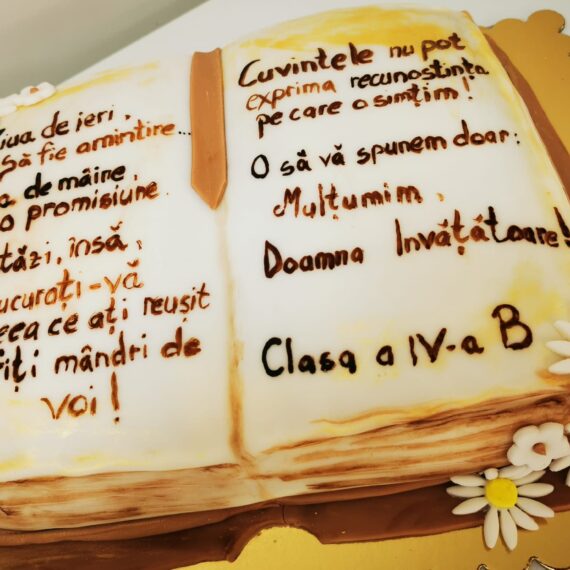 Ziua de ieri,
să fie amintire...
de mâine,
o promisiune
însă,
ce ați reușit
fiți mândri de
voi!
Cuvintele nu pot
exprima recunostința
pe care o simțim!
O să vă spunem doar:
Mulțumim,
Doamna Invățătoare!
Clasa a IV-a B